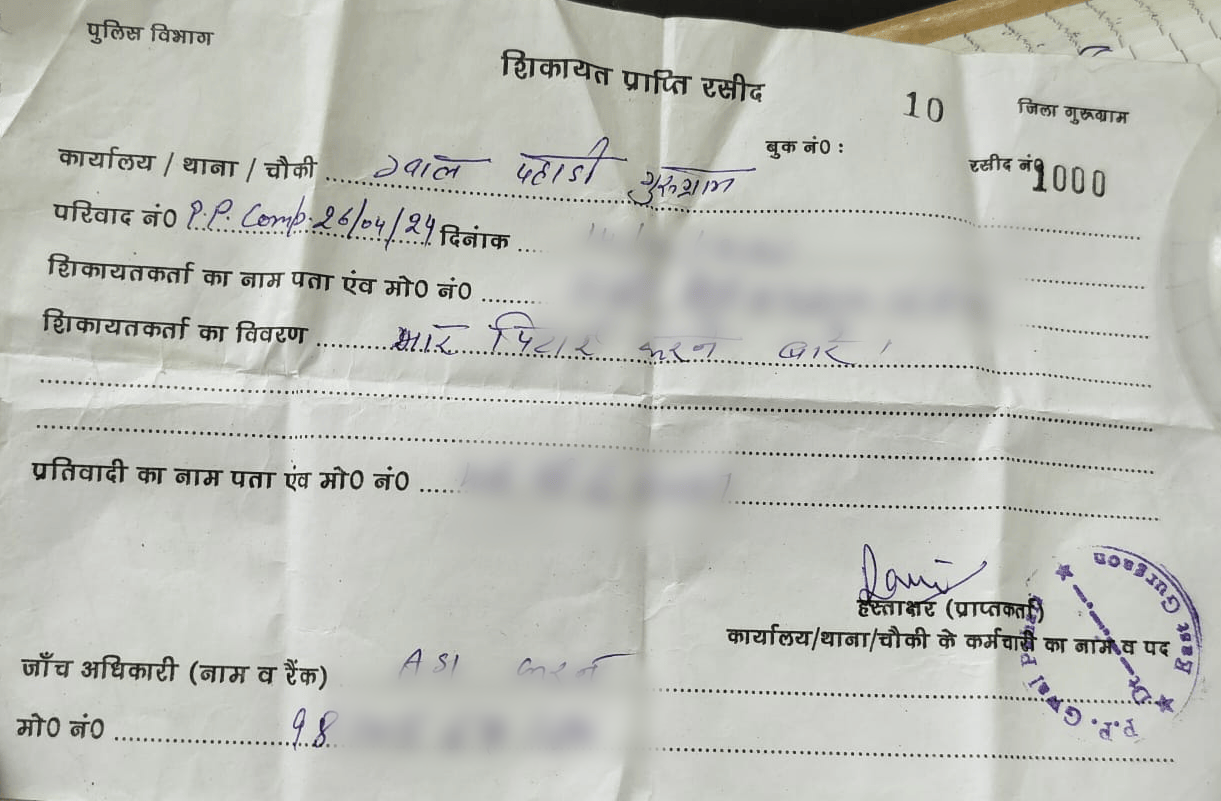 पुलिस विभाग
शिकायत प्राप्ति रसीद
10 जिला गुरूग्राम
बुक नं0 :
रसीद नं0 1000
कार्यालय / थाना / चौकी ग्वाल पहाडी गुरुग्राम
परिवाद नं0 P.P. Comp. 26/04/24 दिनांक
शिकायतकर्ता का नाम पता एंव मो0 नं0
शिकायतकर्ता का विवरण मार पिटाई करन बारे
प्रतिवादी का नाम पता एंव मो0 नं0
हस्ताक्षर (प्राप्तकर्ता)
कार्यालय/थाना/चौकी के कर्मचारी का नाम व पद
जाँच अधिकारी (नाम व रैंक) ASI
मो0 नं0 98
P.P. Gwal East Gurgaon